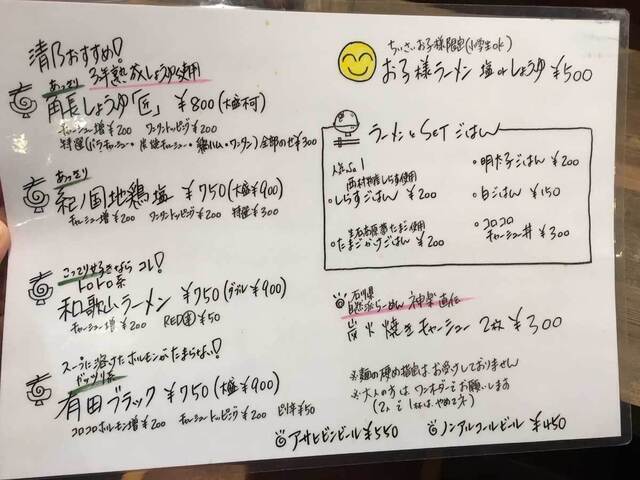 清乃おすすめ!
あっさり 3年熟成しょうゆ使用
角長しょうゆ「匠」 ¥800(大盛可)
チャーシュー増¥200 ワンタントッピング¥200
特選(バラチャーシュー・炭焼チャーシュー・鶏ハム・ワンタン)全部のせ¥300
あっさり
紀ノ国地鶏塩 ¥750(大盛¥900)
チャーシュー増¥200 ワンタントッピング¥200 特選¥300
こってり好きなら コレ!
トロトロ系
和歌山ラーメン ¥750(ダブル¥900)
チャーシュー増¥200 RED ¥50
スープに溶けたホルモンがたまらない!
ガッツリ系
有田ブラック ¥750(大盛¥900)
コロコロホルモン増¥200 チャーシュートッピング¥200 ピリ辛¥50
ちいさいお子様限定(小学生ok)
お子様ラーメン 塩orしょうゆ ¥500
ラーメンとSETごはん
人気No.1
しらす使用
・しらすごはん ¥200
たまご使用
・たまごかけごはん ¥200
・明太子ごはん ¥200
・白ごはん ¥150
・コロコロ
チャーシュー丼 ¥300
石川県
自然派らーめん 神楽 直伝
炭火焼きチャーシュー 2枚 ¥300
※麺の硬め指定はお受けしておりません
※大人の方は ワンオーダーでお願いします
アサヒビンビール ¥550
ノンアルコールビール ¥450